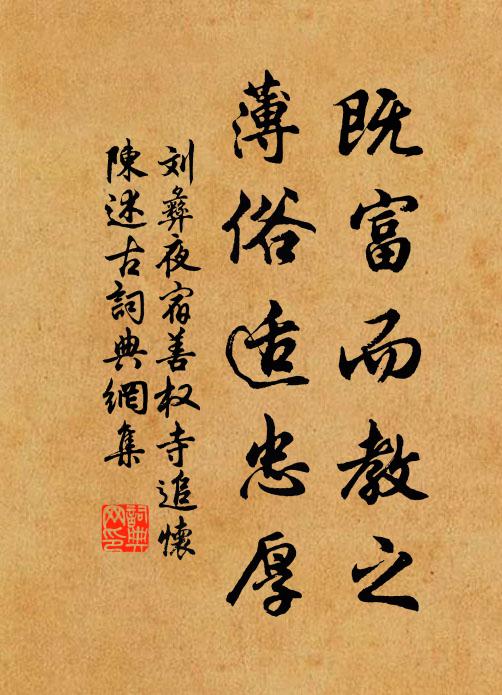 既富而教之
薄俗适忠厚
刘彝夜宿善权寺追懷
陳述古詞典網集
詞典
网印